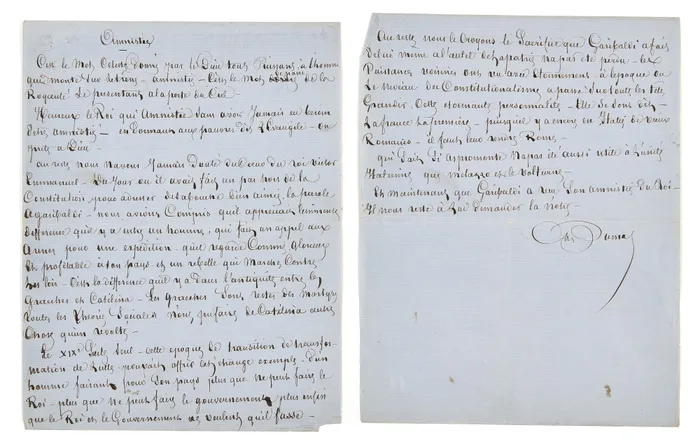 Amnistie
C'est le mot céleste donné par le Dieu tous Puissans, à l'homme
qui monte sur le trône – amnistie – C'est le mot de la
Royauté se présentant à la porte du Ciel
Heureux le Roi qui Amnistie sans avoir Jamais eu besoin
d'être amnistié – en donnant aux pauvres dit l'Evangile – on
prête a Dieu –
au reste nous n'avons Jamais Douté du cœur du roi victor
Emmanuel – Du Jour ou il avait fait un pas hors de la
Constitution pour adresser à la parole
a garibaldi – nous avions Compris qu'il appréciait l'immense
différence qu'il y a entre un homme, qui fait un appel aux
armes pour une expédition – qu'il regarde Comme glorieuse
Et profitable à son pays et un rebelle qui Marche Contre
les lois – C'est la différence qu'il y a dans l'antiquité entre les
Gracches et Catilina – Les Gracches sont restés des Martyrs
toutes les théories Sociales n'ont pu faire de Catilina autre
Chose qu'un révolté –
Le XIXe Siècle Seul – cette époque de transition de transfor-
mation de Lutte pouvait offrir cet étrange exemple – d'un
homme faisant pour son pays plus que ne peut faire le
Roi – plus que ne peut faire le gouvernement plus enfin
que le Roi et le Gouvernement ne veulent qu'il fasse –
Au reste nous le Croyons le Sacrifice que Garibaldi a fait
de lui même à l'autel de la patrie n'a pas été perdu – les
Puissances voisines ont vu avec étonnement à l'époque ou
Le niveau du Constitutionalisme a passé sur toutes les têtes
Grandir Cette étonnante personnalité – Elle se sont dit –
La france La première – puisqu'il y a encore en Italie de vieux
Romains – il faut leur rendre Rome –
qui Sait Si Aspromonte n'a pas été aussi utile à l'unité
Italienne que melazzo et le Volturne –
Et maintenant que Garibaldi a reçu Son amnistie du Roi –
Il nous reste à Lui demander la nôtre –
Alex Dumas